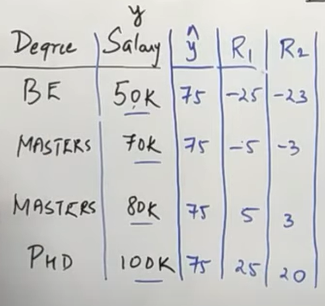 y
Degree Salary ŷ R1 R2
BE 50K 75 -25 -23
MASTERS 70K 75 -5 -3
MASTERS 80K 75 5 3
PHD 100K 75 25 20